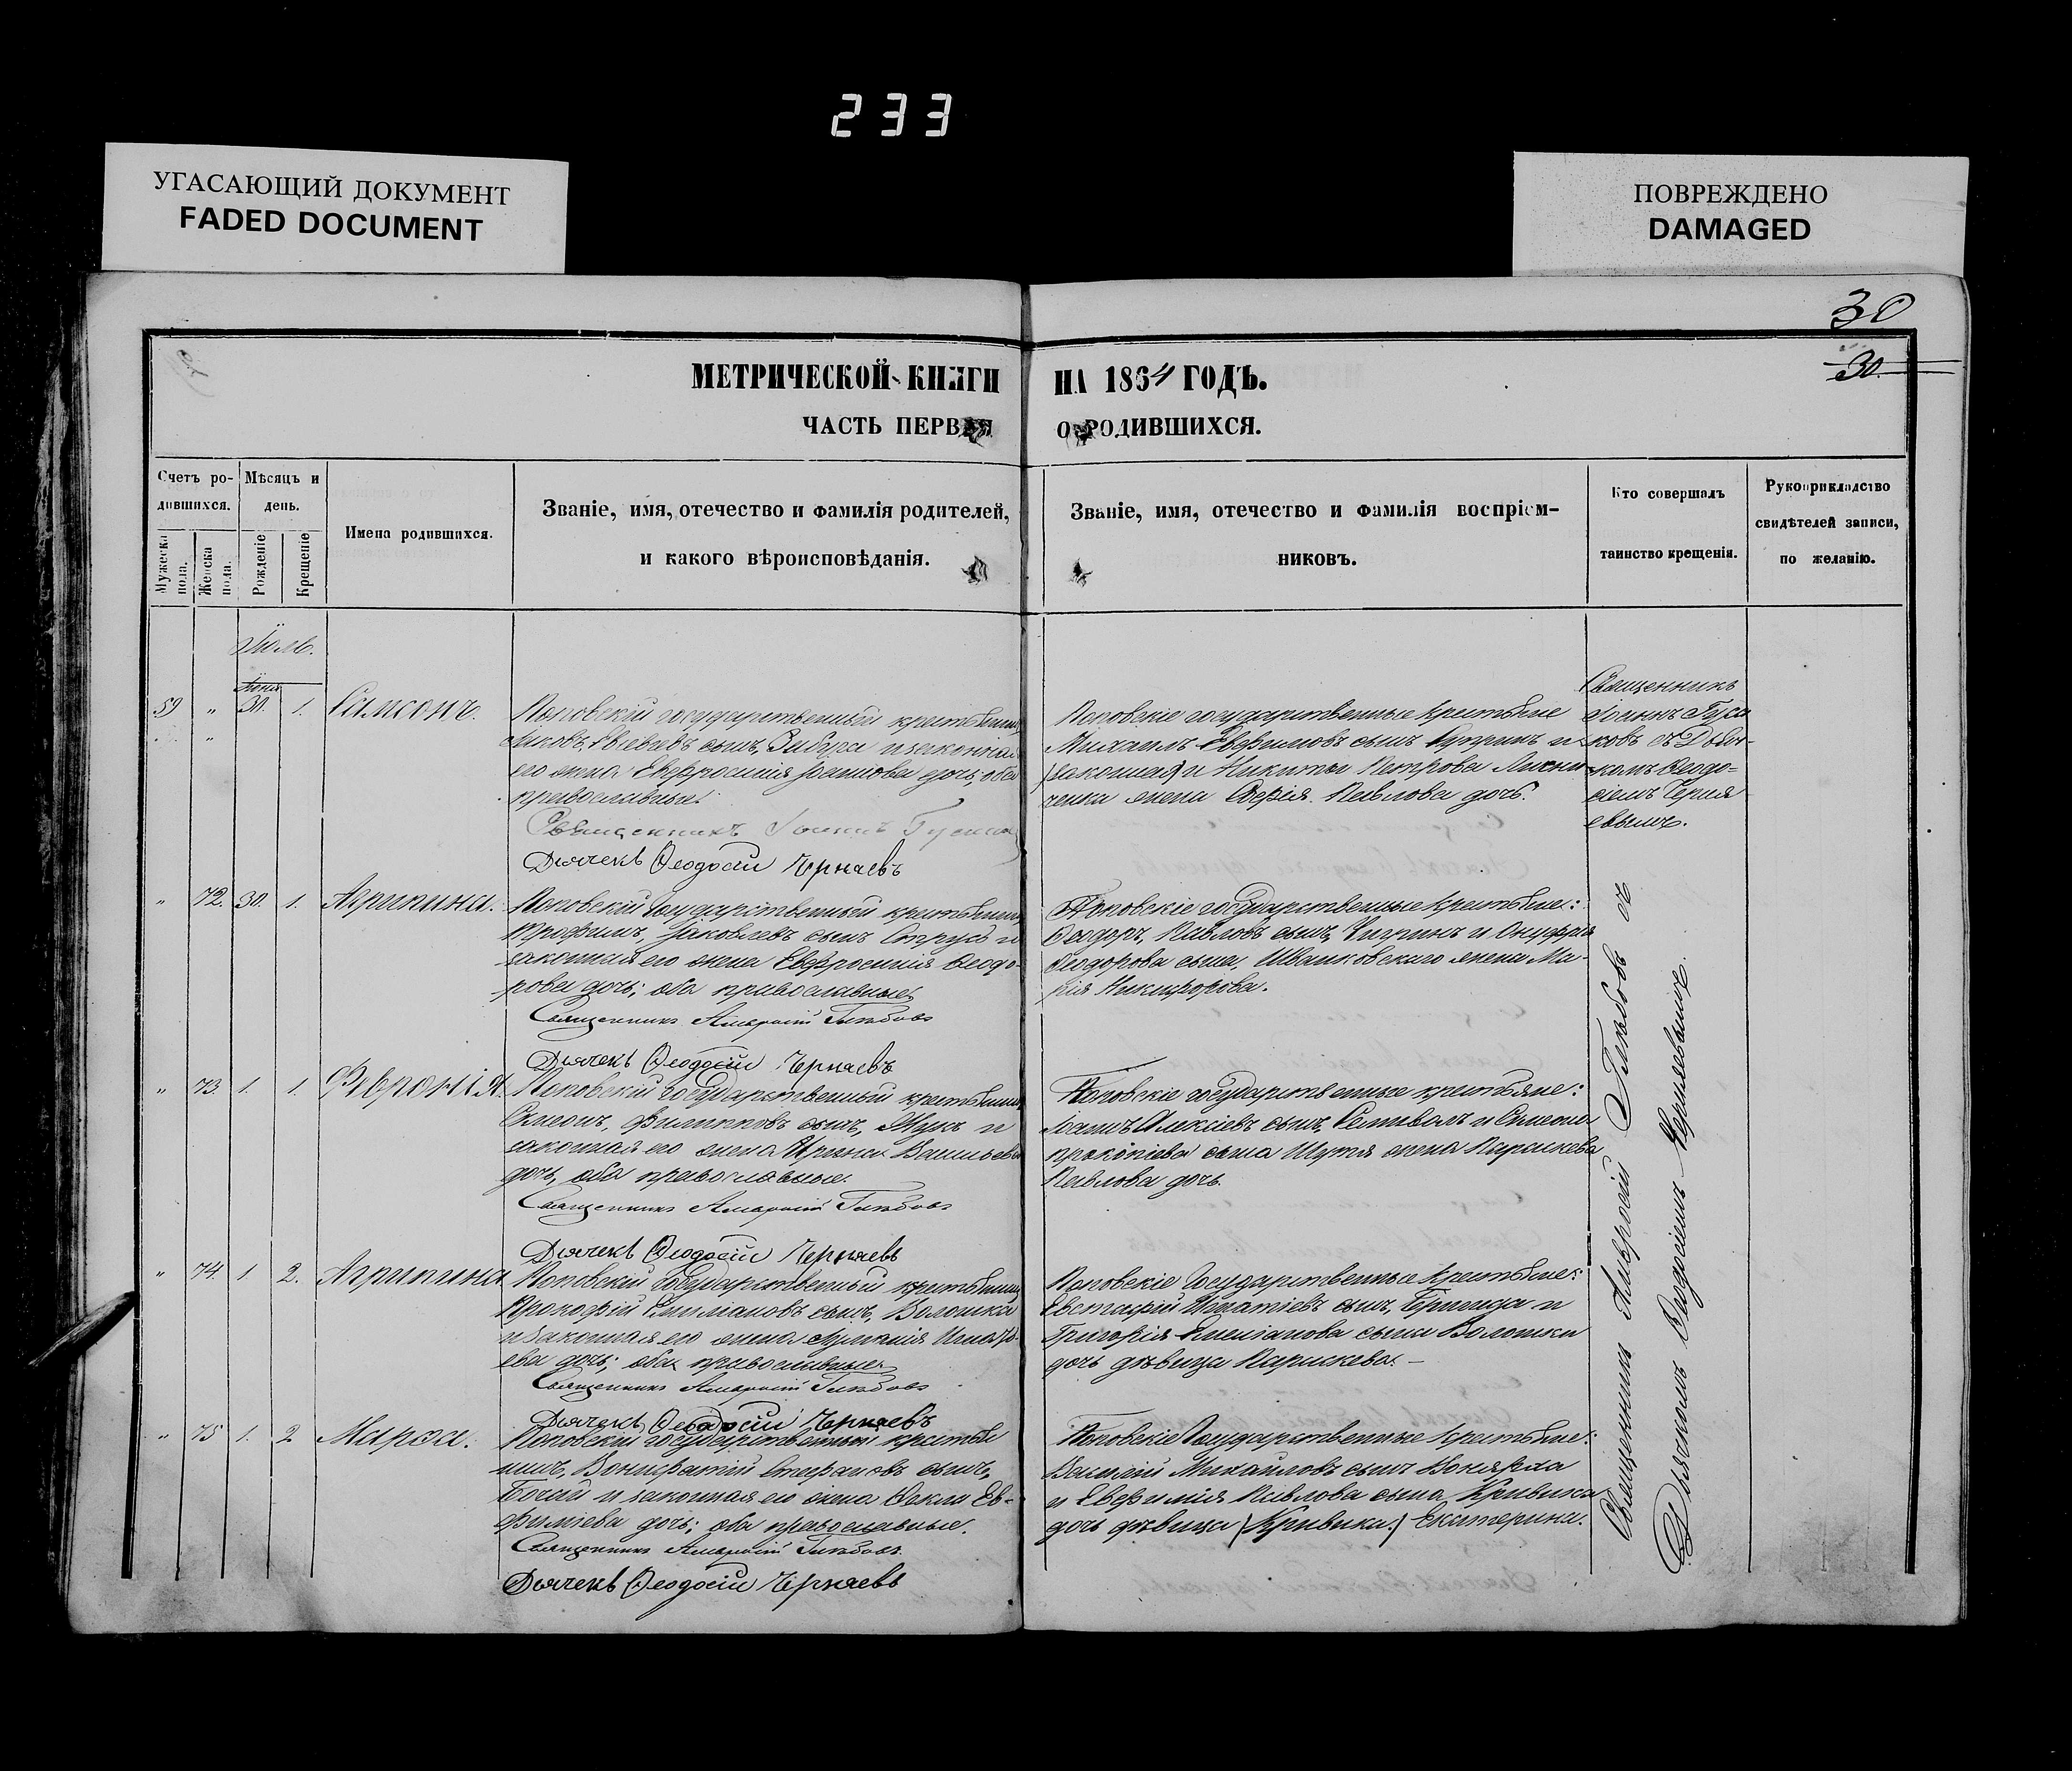 233
УГАСАЮЩИЙ ДОКУМЕНТ
FADED DOCUMENT
ПОВРЕЖДЕНО
DAMAGED
30
30.
МЕТРИЧЕСКОЙ КНИГИ НА 1864 ГОДЪ.
ЧАСТЬ ПЕРВАЯ О РОДИВШИХСЯ.
Счетъ ро-
дившихся.
Мужеска пола.
Женска пола.
Мѣсяцъ и
день.
Рожденіе
Крещеніе
Имена родившихся.
Званіе, имя, отечество и фамилія родителей,
и какого вѣроисповѣданія.
Званіе, имя, отечество и фамилія воспріем-
никовъ.
Кто совершалъ
таинство крещенія.
Рукоприкладство
свидѣтелей записи,
по желанію.
Іюль.
Іюня
59 " 30. 1. Самсонъ.
Поповскій государственный крестьянинъ
сынъ, и законная
его жена Евфросинія дочь; оба
православные.
Священникъ Іоаннъ
Дьячекъ Ѳеодосій Черняевъ
Поповскіе государственные крестьяне
Михаилъ Евфимовъ сынъ и
(законная) и Никиты Петрова
жена Павлова дочь.
Священникъ
Іоаннъ Гуса
ковъ съ Дьяч-
комъ Ѳеодо-
сіемъ Черня
евымъ.
" 72. 30. 1. Агрипина.
Поповскій Государственный крестьянинъ
Трофимъ, Яковлевъ сынъ и
законная его жена Евфросинія Ѳеодо-
рова дочь; оба православные
Священникъ Амвросій Глѣбовъ
Дьячекъ Ѳеодосій Черняевъ
Поповскіе государственные крестьяне:
Ѳеодоръ, Павловъ сынъ, и Онуфрія
Ѳеодорова сына, Иваньковскаго жена Ма-
рія Никифорова.
" 73. 1. 1. Февронія.
Поповскій государственный крестьянинъ
Симеонъ, сынъ, и
законная его жена Ирина Васильева
дочь, оба православные.
Священникъ Амвросій Глѣбовъ
Дьячекъ Ѳеодосій Черняевъ
Поповскіе государственные крестьяне:
Іоаннъ Алексіевъ сынъ, и Симеона
Прокопіева сына жена Параскева
Павлова дочь.
" 74. 1 2. Агрипина
Поповскій Государственный крестьянинъ
Прокофій сынъ, Волошка
и законная его жена
ева дочь; оба православные
Священникъ Амвросій Глѣбовъ
Дьячекъ Ѳеодосій Черняевъ
Поповскіе Государственные крестьяне:
Евстафій Игнатіевъ сынъ, и
Григорія Емеліанова сына Волошки
дочь дѣвица Параскева. –
" 75 1. 2 Марѳа.
Поповскій государственный крестья
нинъ, Вонифатій Стефановъ сынъ,
и законная его жена Ѳекла Ев-
фиміева дочь; оба православные.
Священникъ Амвросій Глѣбовъ
Дьячекъ Ѳеодосій Черняевъ
Поповскіе Государственные крестьяне:
Василій Михайловъ сынъ
и Евфимія Павлова сына Кривика
дочь дѣвица (Кривика) Екатерина.
Священникъ Амвросій Глѣбовъ съ
Дьячкомъ Ѳеодосіемъ Черняевымъ.